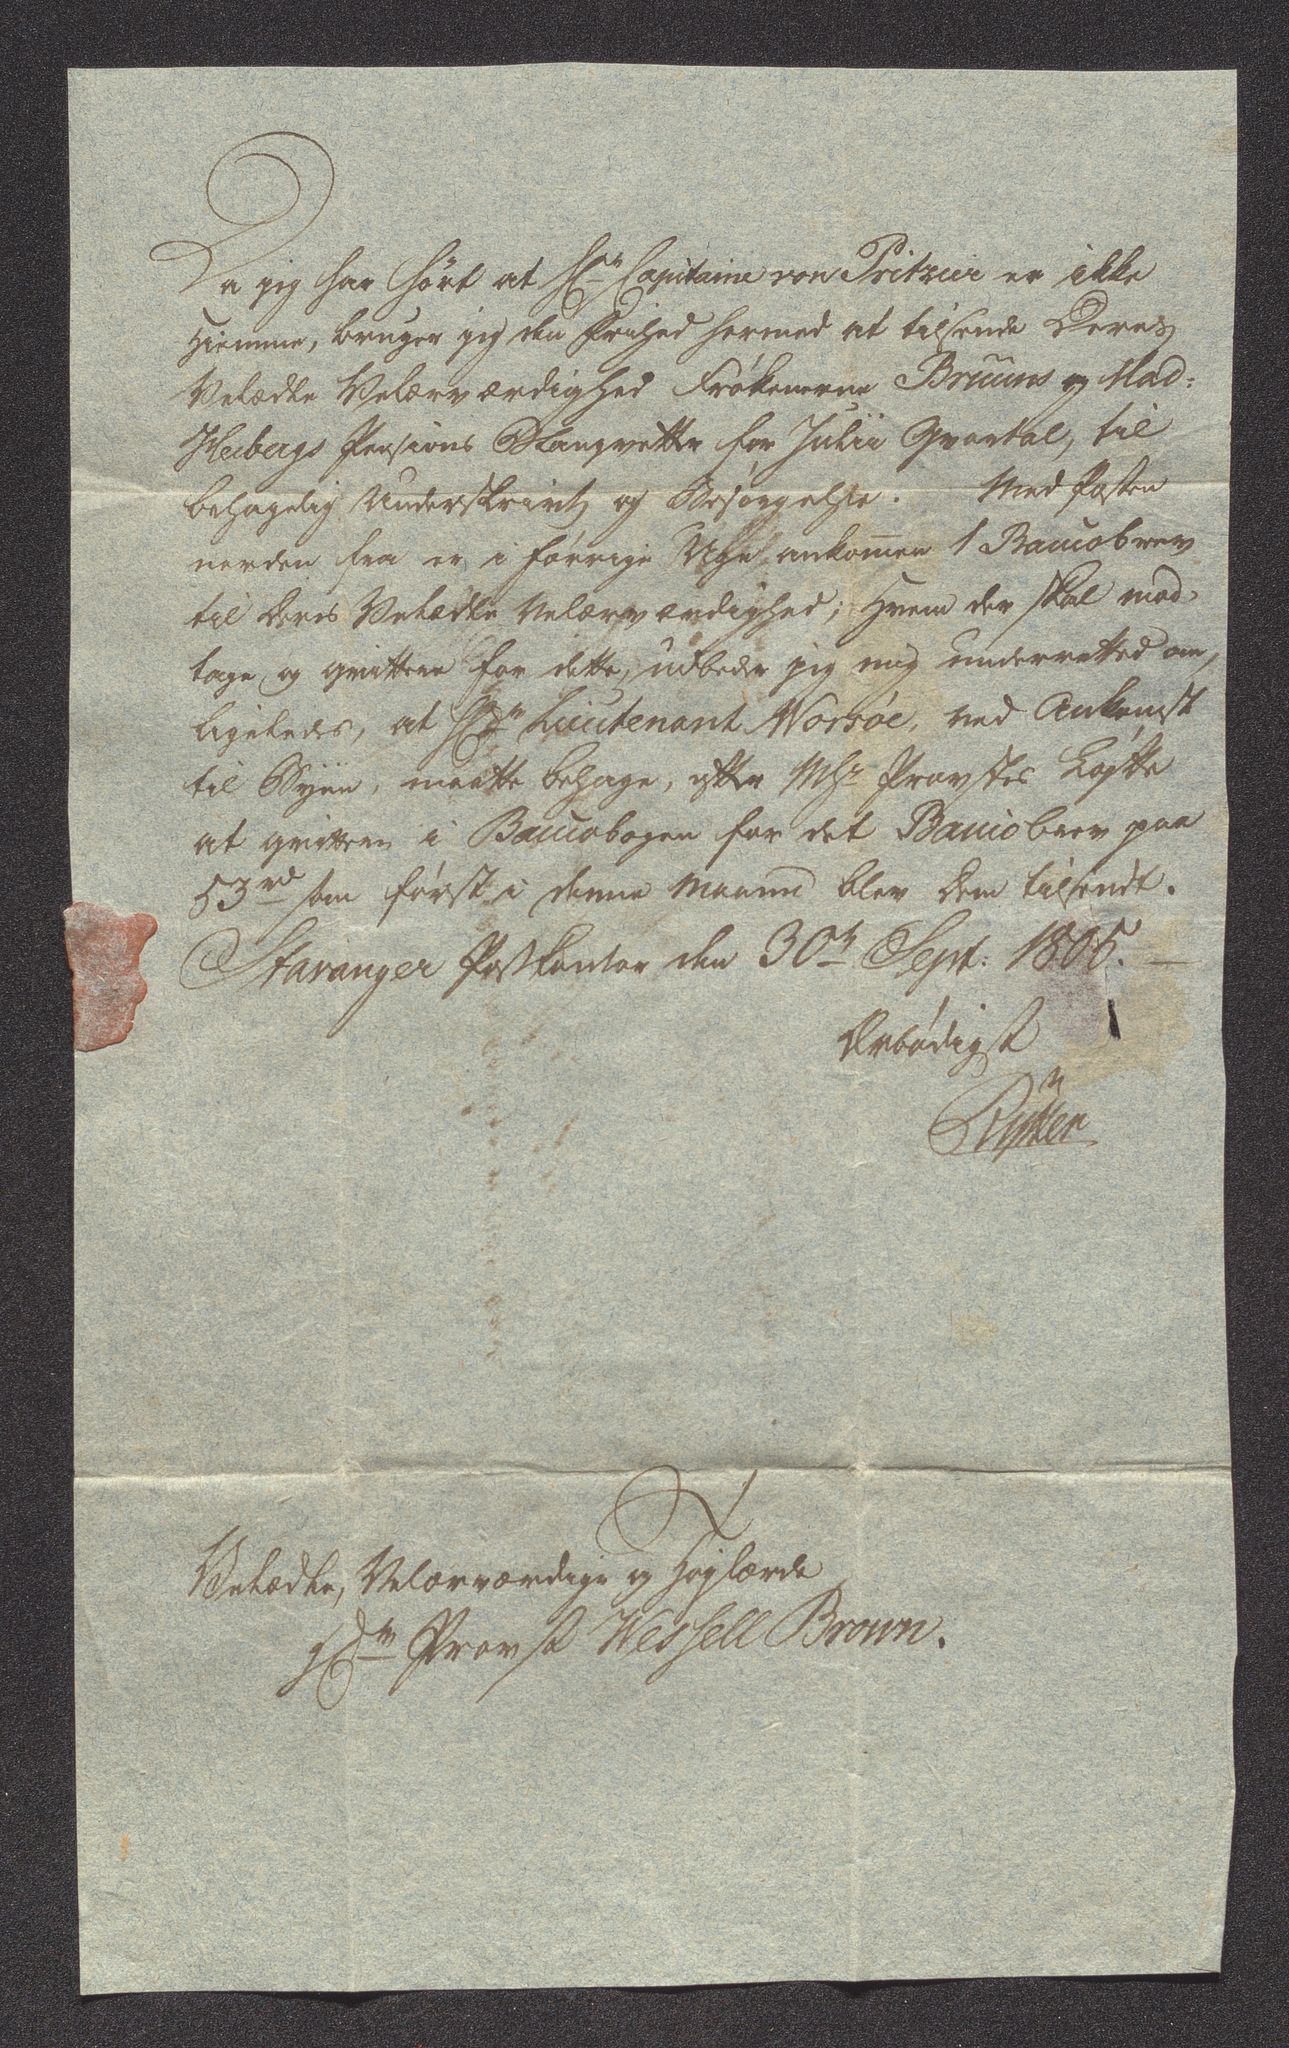 Da jeg har hört at Hr. Capitaine von Pritzier er ikke
Hiemme, bruger jeg den Frihed hermed at tilsende Deres
Velædle Velærværdighed Frökenerne Bruuns og Mad:
Heibergs Pensions Qvartal for Julii Qvartal, til
behagelig Underskrivt og Besörgelse. Med Posten
norden fra er i forrige Uge ankommen 1 Bancobrev
til Deres Velædle Velærværdighed; Hvem der skal mod-
tage og qvittere for dette, udbeder jeg mig underretted om,
ligeledes, at Hr. Lieutenant Worsöe, ved Ankomst
til Byen, maatte behage, efter Mhr Provstes Löfte
at qvittere i Bancobogen for det Bancobrev paa
53 rd som först i denne Maaned blev Dem tilsendt.
Stavanger Postkontor den 30te Sept: 1805.
Ærbödigst
Velædle, Velærværdige og Höylærde
Hr. Provst Wessell Brown.